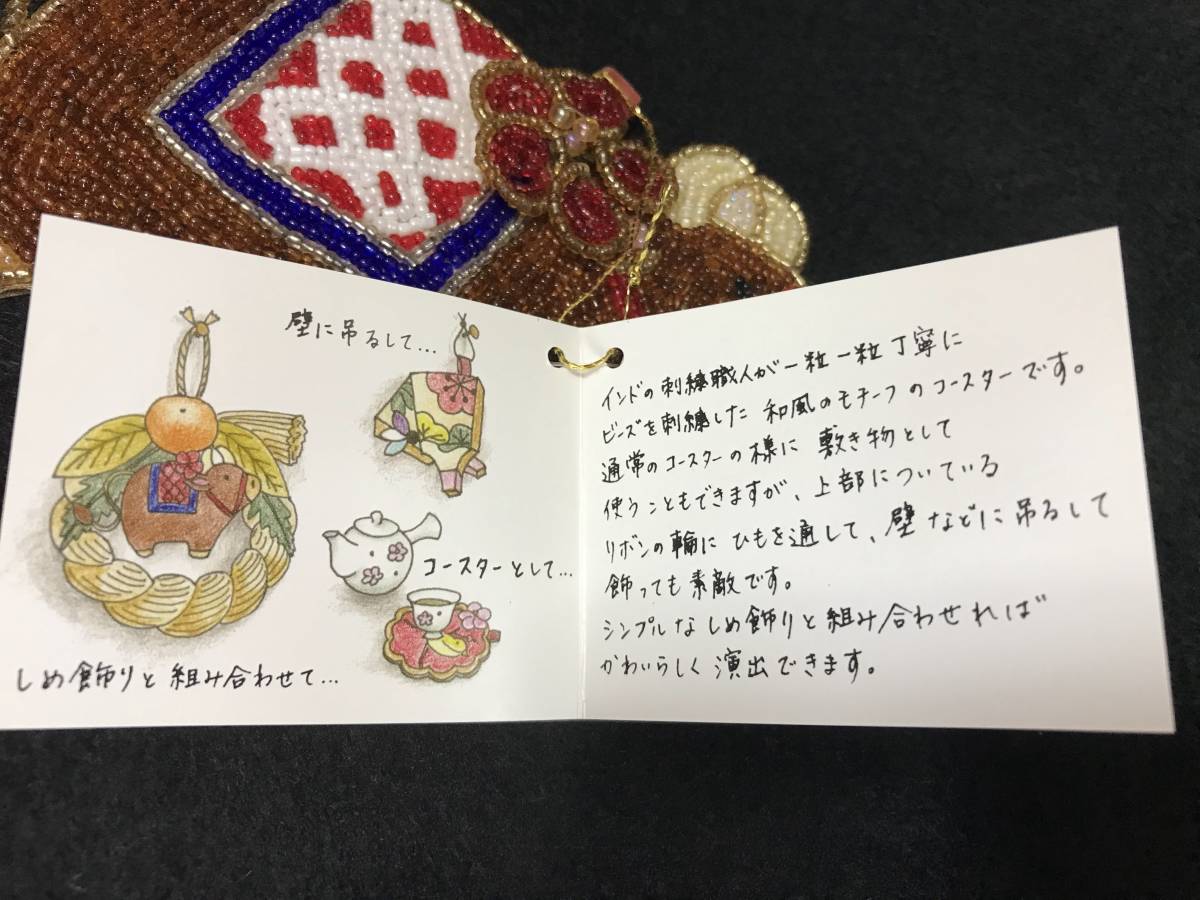 壁に吊るして...
コースターとして...
しめ飾りと組み合わせて...
インドの刺繍職人が一粒一粒丁寧に
ビーズを刺繍した和風のモチーフのコースターです。
通常のコースターの様に敷き物として
使うこともできますが、上部についている
リボンの輪にひもを通して、壁などに吊るして
飾っても素敵です。
シンプルなしめ飾りと組み合わせれば
かわいらしく演出できます。